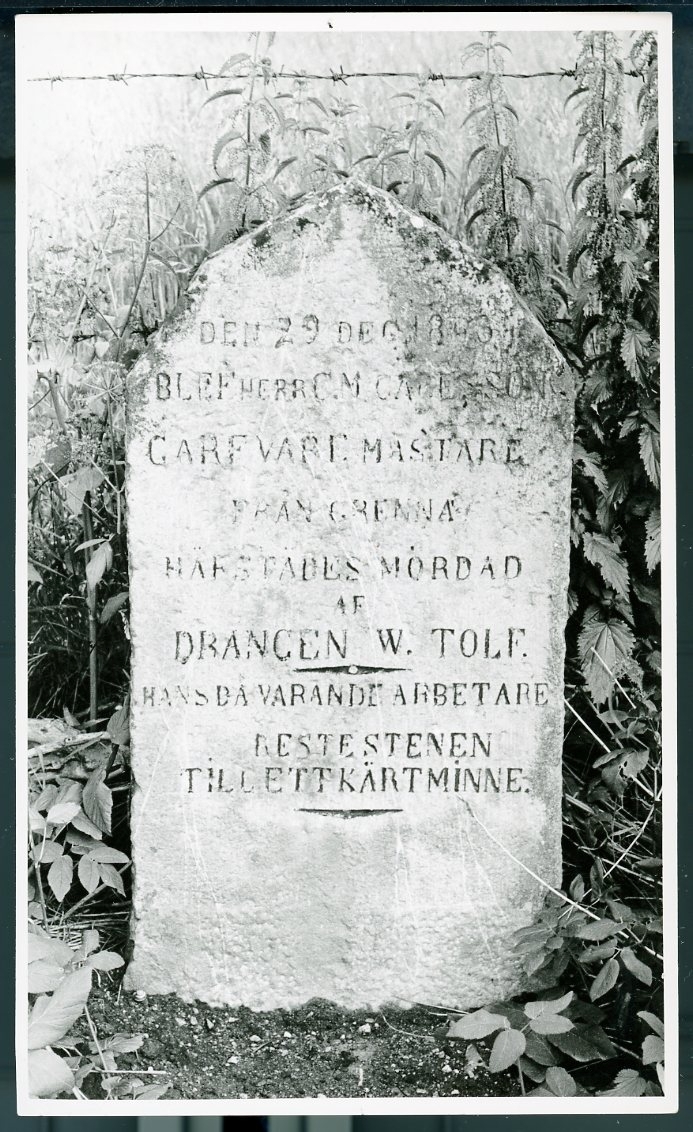 DEN 29 DEC
BLEF HERR C.M.
GARFVARE MÄSTARE
FRÅN GRENNA
HÄRSTÄDES MÖRDAD
AF
DRÄNGEN W. TOLF.
HANS DÅ VARANDE ARBETARE
RESTES STENEN
TILL ETT KÄRT MINNE.